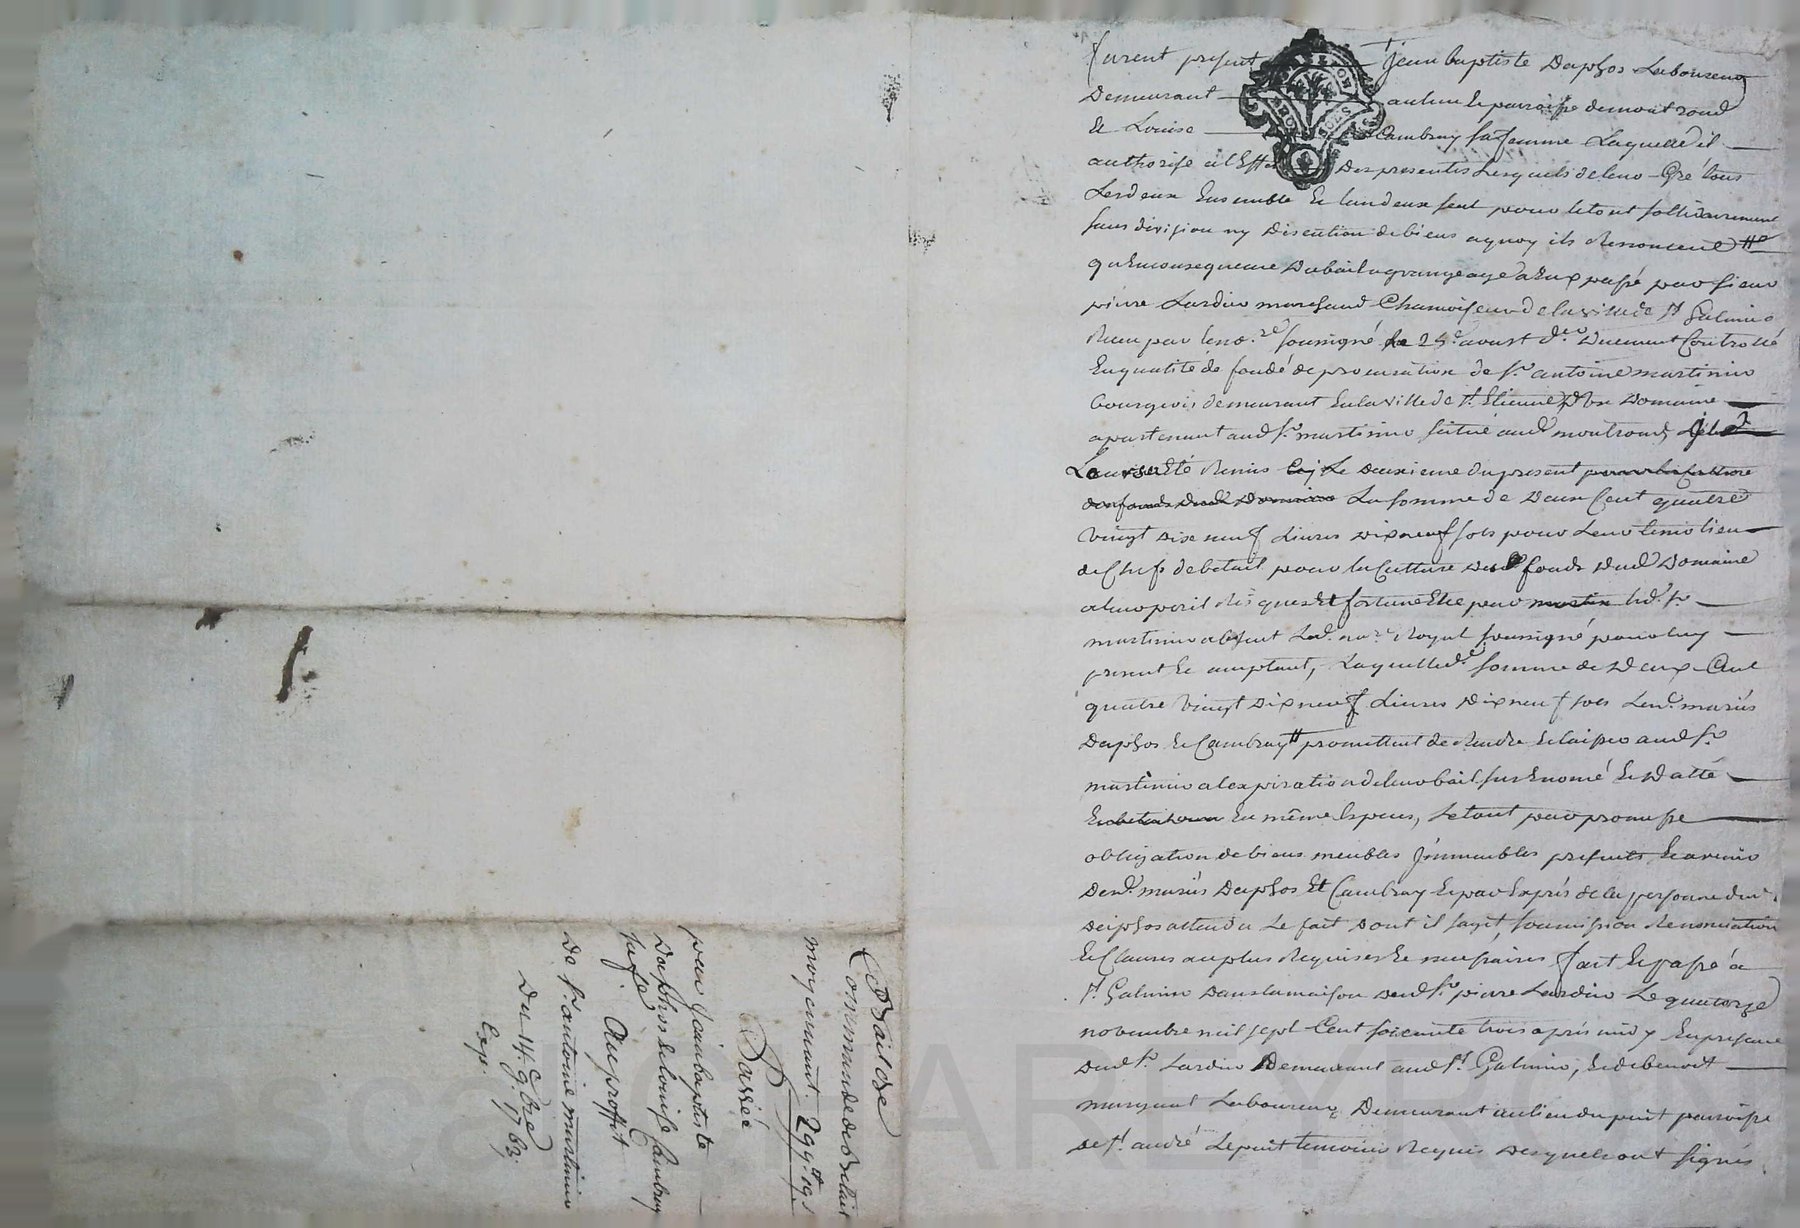 furent presents Jean baptiste Daphos Laboureur
Demeurant au lieu et parroisse de montrond
Et Louise Cambray sa femme Laquelle il
authorise a l'Effet Des presentes Lesquels de leur Gré tous
Les deux Ensemble Et lun deux seul pour le tout sollidairement
sans division ny Discution de biens a quoy ils Renoncent
qu'En consequence Du bail a grangeage a Eux passé par sieur
pierre Lardier marchand Chamoiseur de la ville de St Galmier
Receu par le no.re soussigné le 25e aoust d.er Duement Controllé
En qualité de fondé de procuration de sr antoine martinier
bourgeois demeurant En la ville de St Etienne Domaine
apartenant aud sr martinier situé aud montrond
Eté Remis Le deuxieme du present pour la Culture
des fonds dud Domaine La somme de Deux Cent quatre
vingt dix neuf Livres Dix neuf sols pour Leur tenir lieu
de Chefs de betail pour la Culture Des fonds Dud Domaine
a leur peril Risques Et fortune Et ce par led. sr
martinier Led. no.re Royal soussigné pour luy
present Et acceptant, Laquelle de somme de Deux Cent
quatre vingt Dix neuf Livres Dix neuf sols Lesd. mariés
Daphos Et Cambray promettent de Rendre Et laisser aud sr
martinier a l'expiration de leur bail sus Enoncé Et Datté
En même Espece, Le tout par promesse
obligation de biens meubles Jmmeubles presents Et avenir
Desd. mariés Daphos Et Cambray Et par Exprés de la personne dud.
Daphos attendu Le fait Dont il sagit, soumission Renonciation
Et Clauses au plus Requises Et necessaires fait Et passé a
St Galmier Dans la maison dud sr pierre Lardier Le quatorze
novembre mil sept Cent soixante trois aprés midy En presence
Dud sr Lardier Demeurant aud St Galmier, Et de benoit
marquant Laboureur Demeurant au lieu du puit parroisse
de St andré Le puit temoins Requis Desquels ont signés
Bail de
Commande de Betail
moyennant 299# 19 s
Passée
par Jean baptiste
Daphos Et Louise Cambray
sa fe. Au proffit
De sr antoine martinier
Du 14e 9bre 1763.
Exp.
CHAREYRON